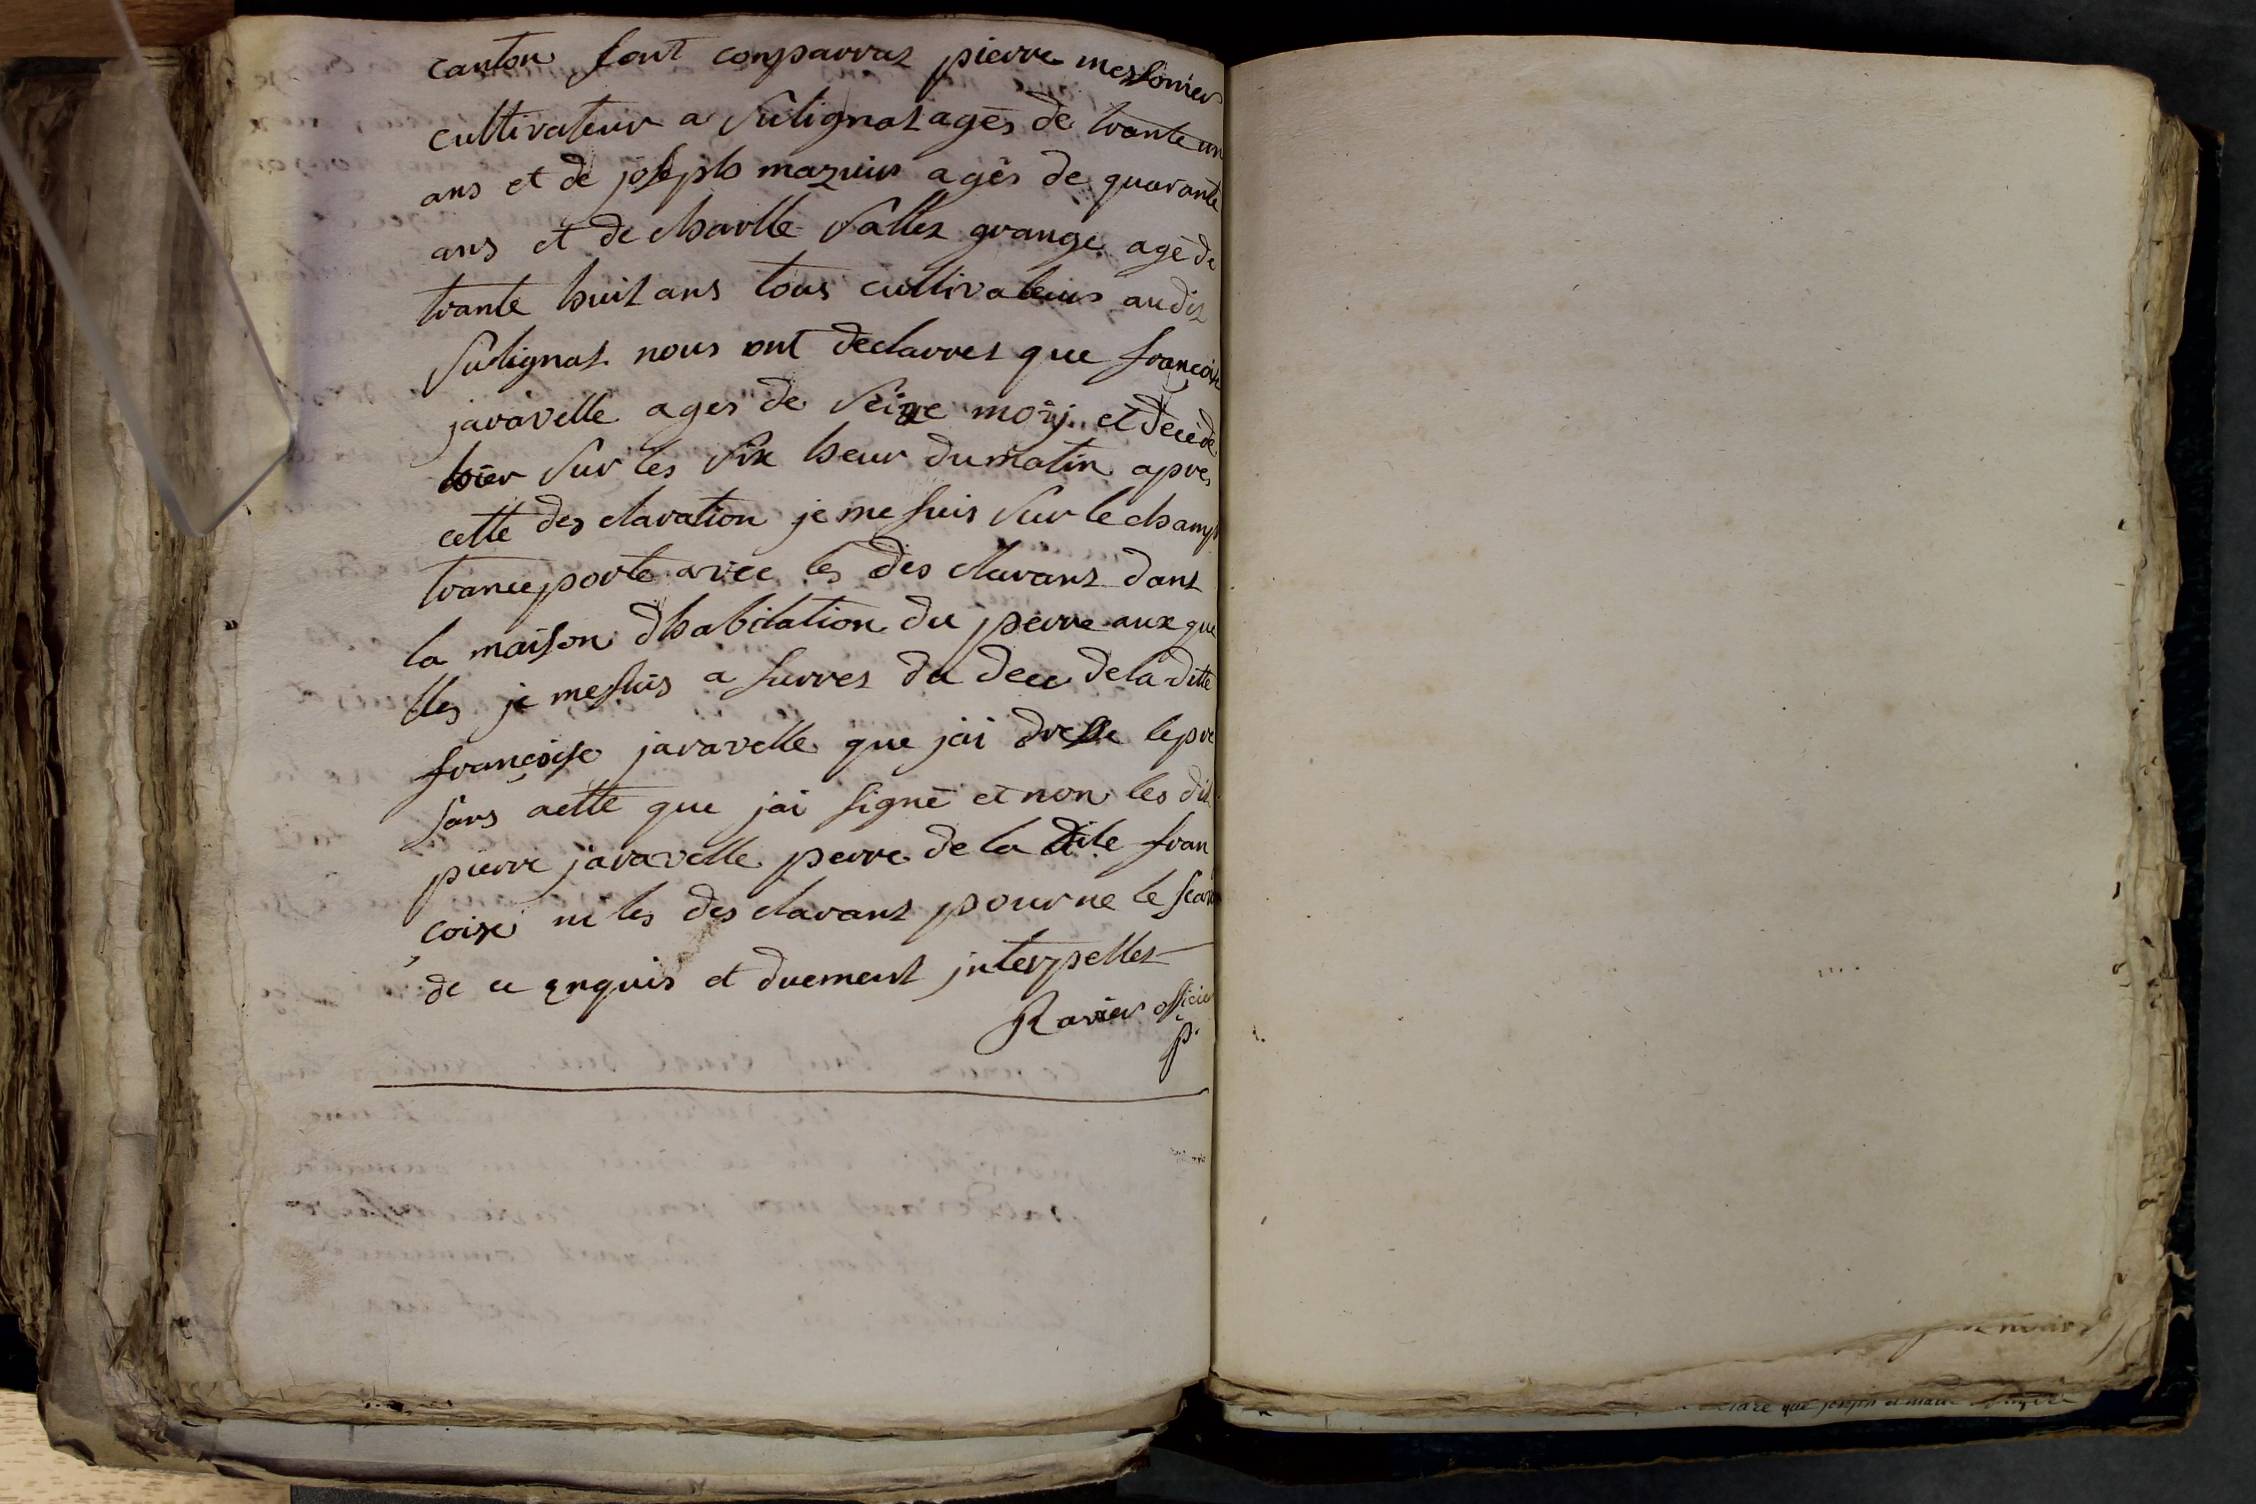 canton sont comparraz pierre messonier
cultivateur a Sulignaz agés de trante un
ans et de joseph mazuir agés de quarante
ans et de charlle Sallez grange agé de
trante huit ans tous cultivateurs audiz
Sulignaz nous ont declarrez que françoise
javavelle ages de Seize moij et decede
hier Sur les Six heur du matin apres
cette des claration je me suis Sur le champs
tranceporte avec les des clarans dans
la maison dhabitation du perre aux que
lles je me suis a surrez du dece de la ditte
françoise javavelle que jai dresse le pre
sans aette que jai signé et non les dit
pierre javavelle perre de la dite fran
çoise ni les des clarans pour ne le scavoir
de ce enquis et duement jnterpellez
Ravier officier
p.
declare que joseph et marie